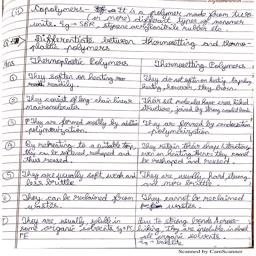 Copolymers - It is a polymer made from two
or more different types of monomer
units. Eg → SBR, styrene acrylonitrile rubber etc
Differentiate between thermosetting and thermo-
plastic polymers
Ans Thermoplastic Polymers Thermosetting Polymers
① They soften on heating readily. They do not soften on heating
heating, however, they burn.
② They consist of long-chain linear
macromolecules. Their set molecules have cross linked
structure, joined by strong covalent bonds.
③ They are formed mostly by addition
polymerization. They are formed by condensation
polymerization.
④ By reheating to a suitable temp,
they can be softened, reshaped and
thus reused. They retain their shape & structure
even on heating. Hence, they cannot
be reshaped and reused.
⑤ They are usually soft, weak and
less brittle. They are usually hard, strong
and more brittle.
⑥ They can be reclaimed from
waste. They cannot be reclaimed
from waste.
⑦ They are usually soluble in
some organic solvents. Eg → PE, Due to strong bonds & cross-
linking, they are insoluble in almost
all organic solvents.
Eg → bakelite
Scanned by CamScanner